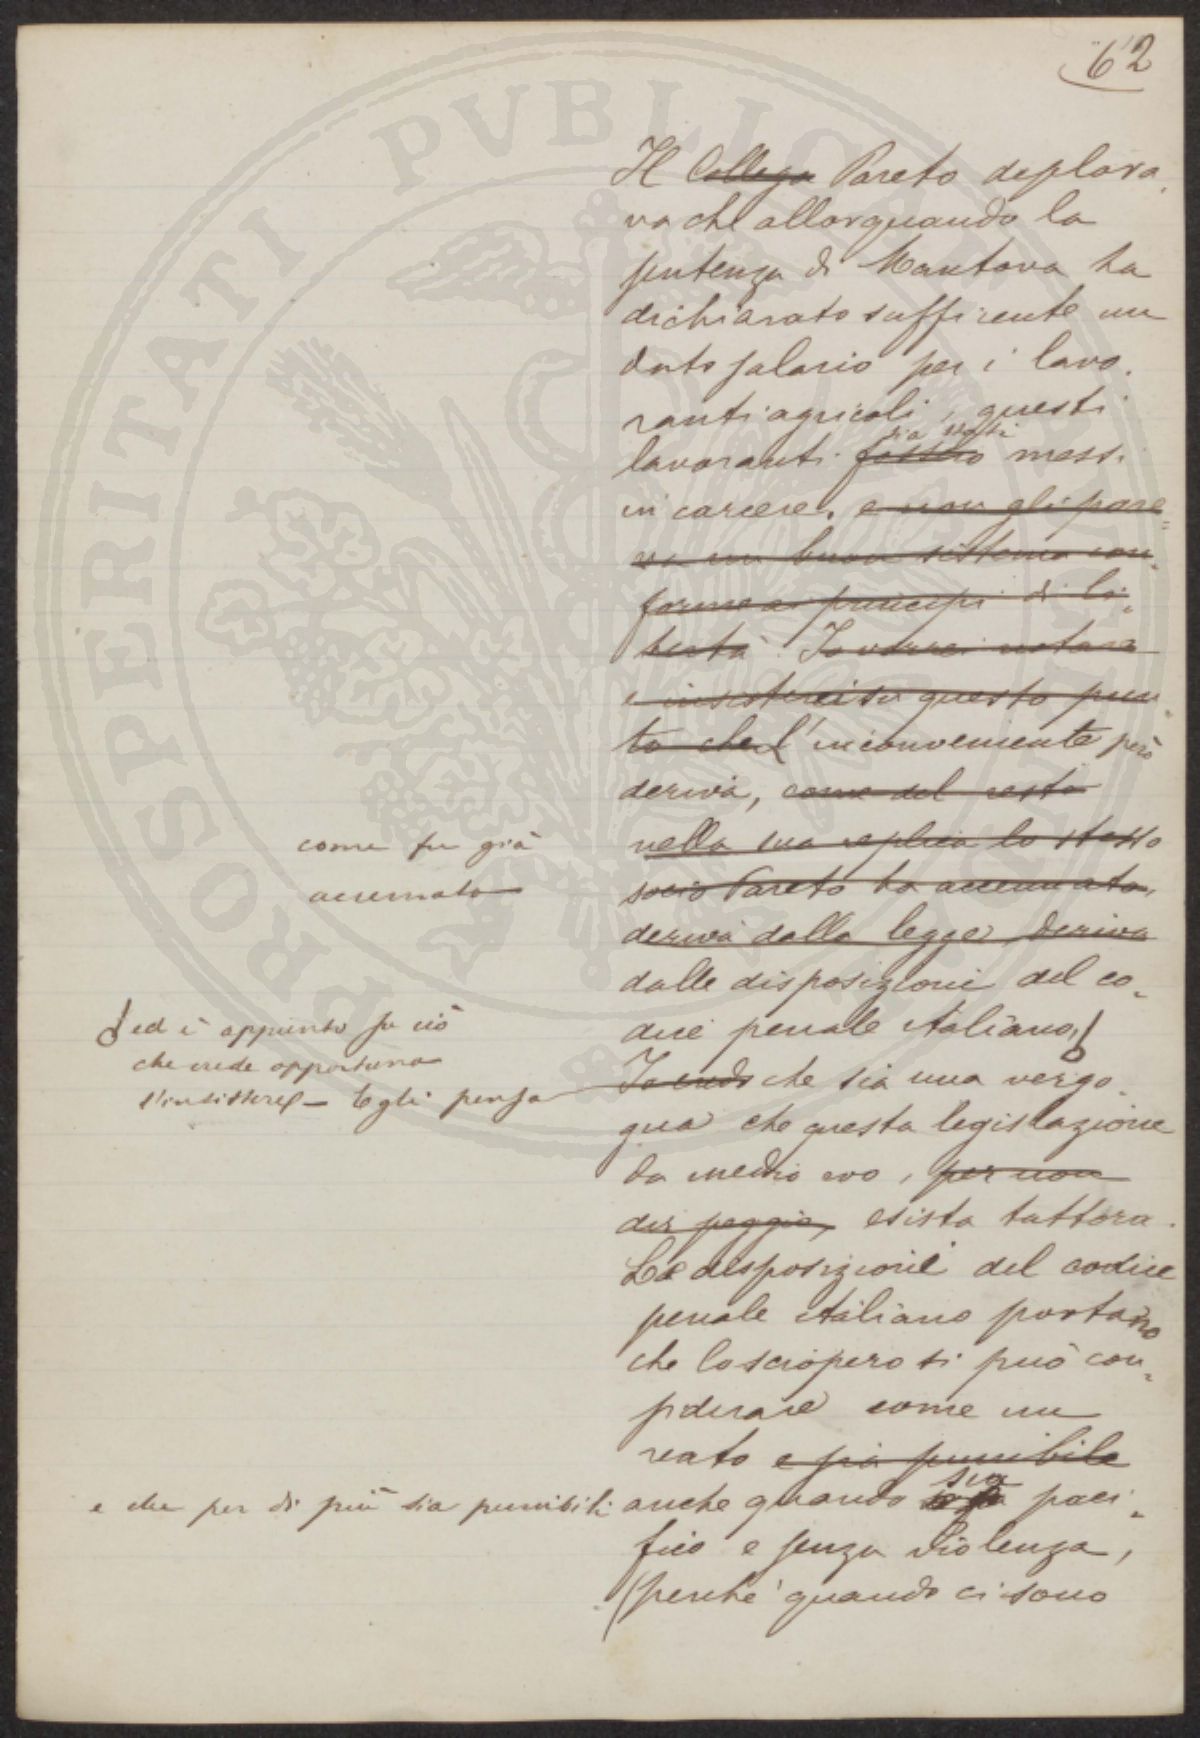 62
Il Collega Pareto deplora-
va che allorquando la
sentenza di Mantova ha
dichiarato sufficente un
dato salario per i lavo-
ranti agricoli, questi
sia stati
lavoranti fossero messi
in carcere, e non gli pare-
va un buon sistema con-
forme ai principi di li-
bertà. Io vorrei notare
e insisterei su questo pun-
to che l'inconveniente però
deriva, come del resto
come fu già
nella sua replica lo stesso
accennato
socio Pareto ha accennato,
deriva dalla legge, deriva
dalle disposizioni del co-
dice penale italiano,
ed è appunto su ciò
che crede opportuno
l'insistere - Egli pensa
Io credo che sia una vergo-
gna che questa legislazione
da medio evo, per non
dir peggio, esista tuttora.
Le disposizioni del codice
penale italiano portano
che lo sciopero si può con-
siderare come un
reato e sia punibile
sia
e che per di più sia punibile anche quando paci-
fico e senza violenza,
(perché quando ci sono
PROSPERITATI PVBLICAE